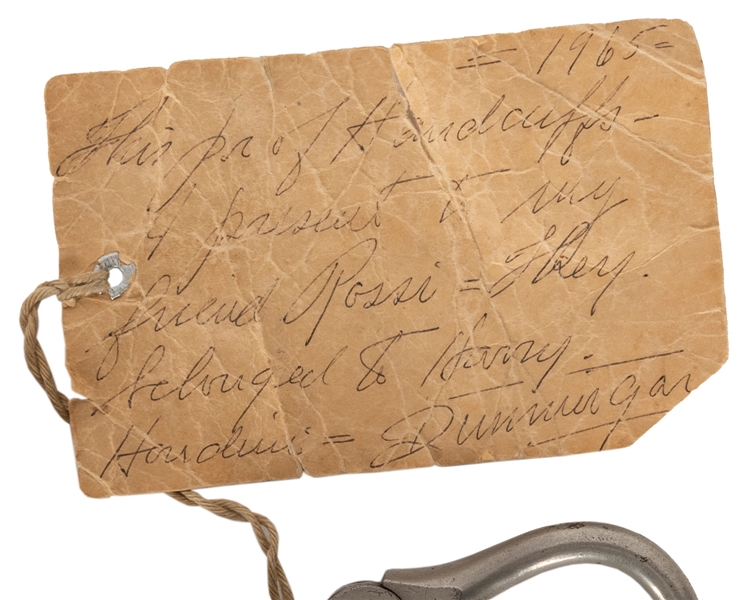 = 1965=
This pr of Handcuffs-
I present to my
friend Rossi = They.
belonged to Harry.
Houdini = Dunninger